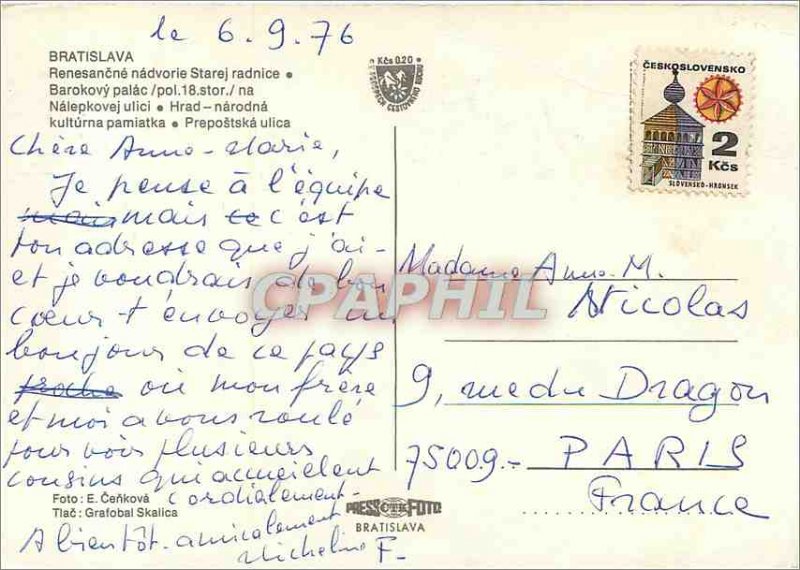 le 6.9.76
BRATISLAVA
Renesančné nádvorie Starej radnice •
Barokový palác /pol.18.stor./ na
Nálepkovej ulici • Hrad – národná
kultúrna pamiatka • Prepoštská ulica
Kčs 0.20
ČESKOSLOVENSKO
2
Kčs
SLOVENSKO-HRONSEK
Chère Anne-Marie,
Je pense à l'équipe
mais mais c'est
ton adresse que j'ai-
et je voudrais de bon
cœur t'envoyer un
bonjour de ce pays
proche où mon frère
et moi avons roulé
pour voir plusieurs
cousins qui accueillent
cordialement-
A bientôt. amicalement
Micheline F-
Madame Anne-M.
Nicolas
9, rue du Dragon
75009.- PARIS
France
CPAPHIL
Foto: E. Čeňková
Tlač: Grafobal Skalica
PRESS ČTK FOTO
BRATISLAVA